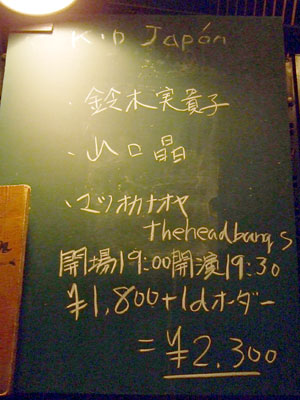 K.D Japón
・鈴木実貴子
・山口晶
・マツオカナオヤ
theheadbangs
開場19:00開演19:30
¥1,800+1dオーダー
=¥2.300